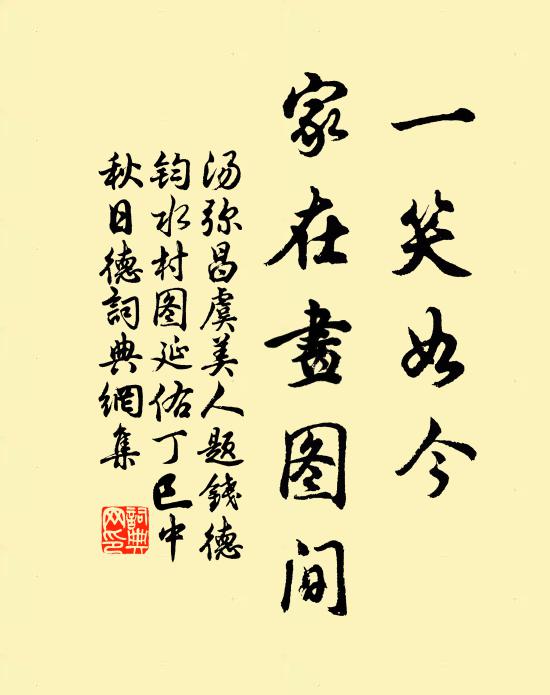 一笑如今
家在畫图间
汤弥昌虞美人题錢德
钧水村图延佑丁巳中
秋日德詞典網集
詞典网印